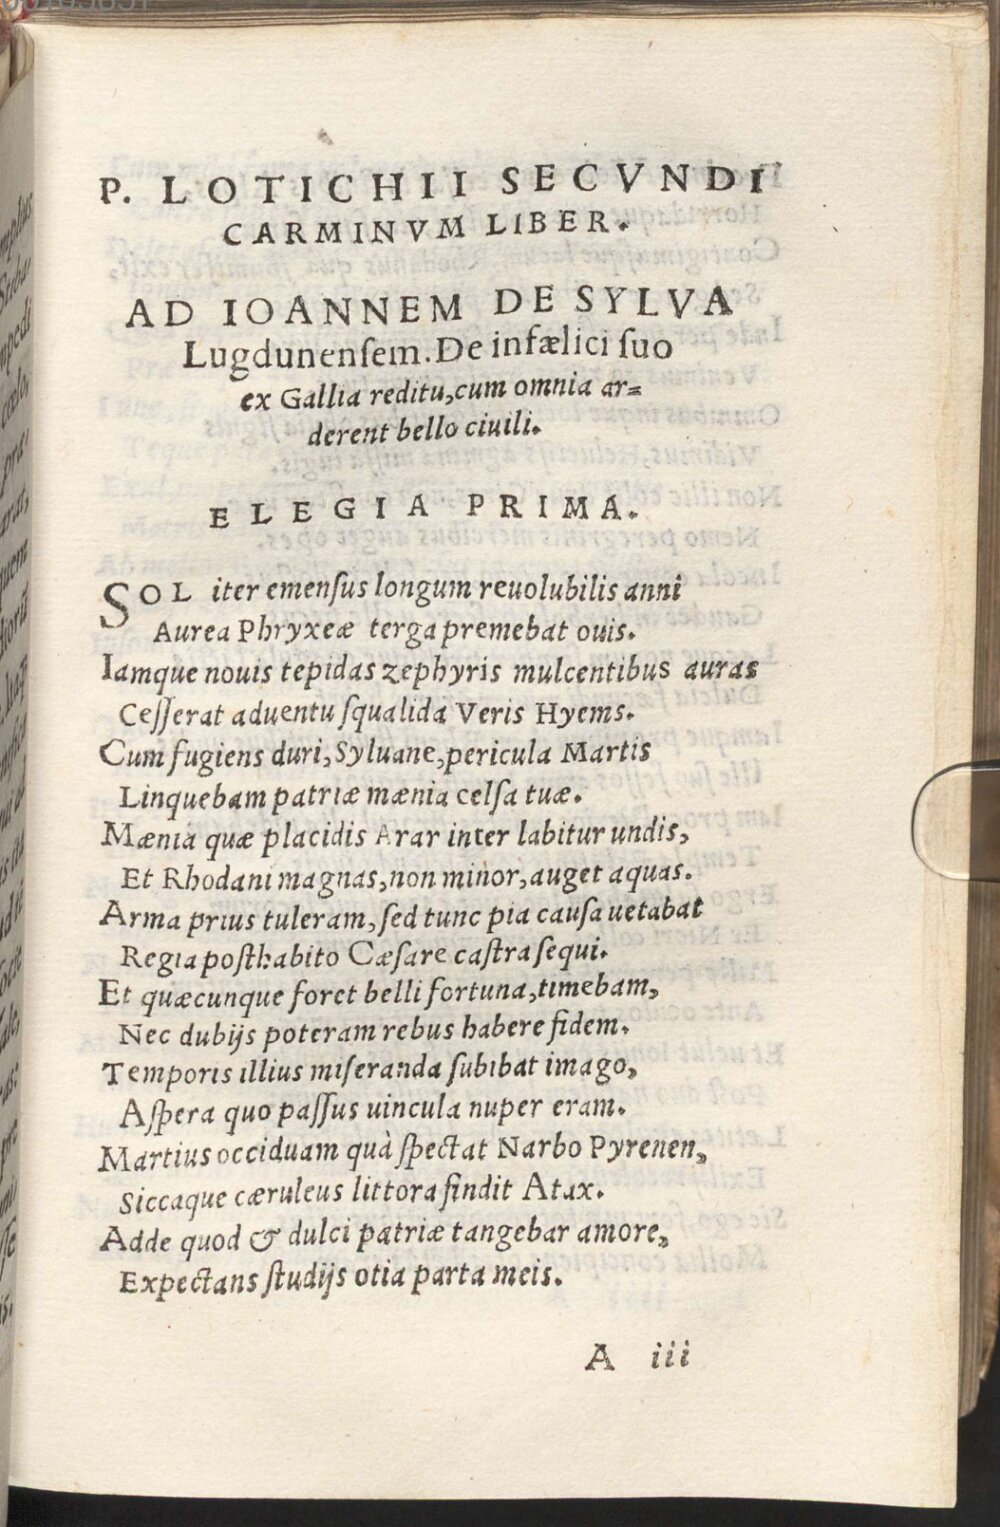 P. LOTICHII SECVNDI
CARMINVM LIBER.
AD IOANNEM DE SYLVA
Lugdunenſem. De infælici ſuo
ex Gallia reditu, cum omnia ar=
derent bello ciuili.
ELEGIA PRIMA.
SOL iter emenſus longum reuolubilis anni
Aurea Phryxeæ terga premebat ouis.
Iamque nouis tepidas zephyris mulcentibus auras
Ceſſerat aduentu ſqualida Veris Hyems.
Cum fugiens duri, Syluane, pericula Martis
Linquebam patriæ mænia celſa tuæ.
Mænia quæ placidis Arar inter labitur undis,
Et Rhodani magnas, non minor, auget aquas.
Arma prius tuleram, ſed tunc pia cauſa uetabat
Regia poſthabito Cæſare caſtra ſequi.
Et quæcunque foret belli fortuna, timebam,
Nec dubijs poteram rebus habere fidem.
Temporis illius miſeranda ſubibat imago,
Aſpera quo paſſus uincula nuper eram.
Martius occiduam quà ſpectat Narbo Pyrenen,
Siccaque cæruleus littora findit Atax.
Adde quod & dulci patriæ tangebar amore,
Expectans ſtudijs otia parta meis.
A iii